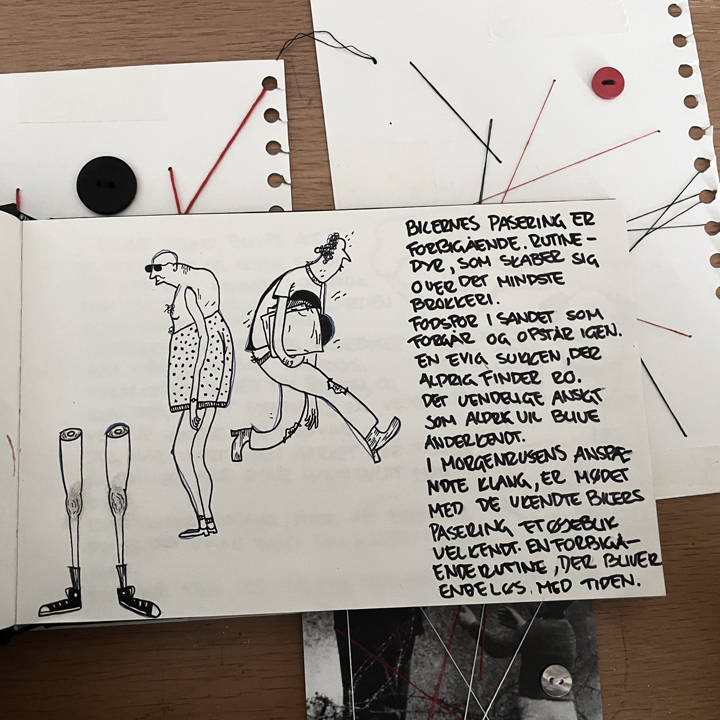 BILERNES PASERING ER
FORBIGÅENDE. RUTINE-
DYR, SOM SKABER SIG
OVER DET MINDSTE
BROKKERI.
FODSPOR I SANDET SOM
FORGÅR OG OPSTÅR IGEN.
EN EVIG SUKKEN, DER
ALDRIG FINDER RO.
DET VENDELIGE ANSIGT
SOM ALDRIG VIL BLIVE
ANDERKENDT.
I MORGENRUSENS ANSPÆ-
NDTE KLANG, ER MØDET
MED DE UKENDTE BILERS
PASERING ET ØJEBLIK
VELKENDT. EN FORBIGÅ-
ENDE RUTINE, DER BLIVER
ENDELØS. MED TIDEN.